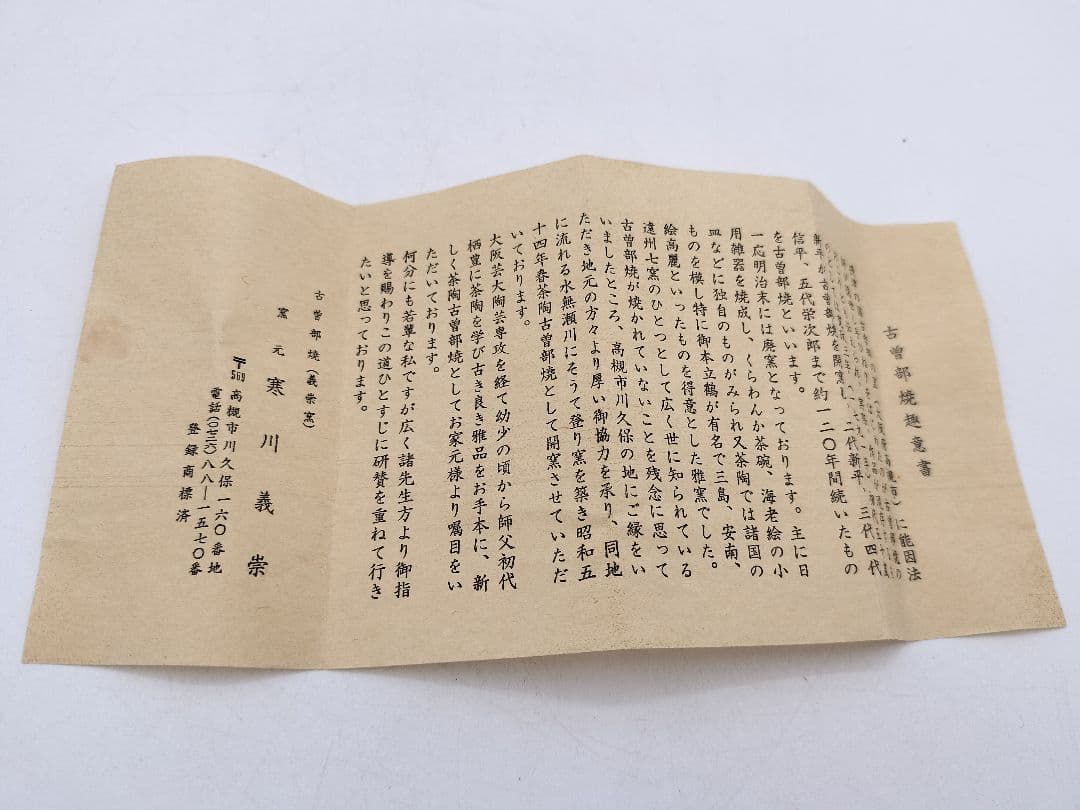 古曽部焼趣意書
に能因法
新平が古曽部焼を開窯し
二代新平、三代四代
信平、五代栄次郎まで約一二〇年間続いたもの
を古曽部焼といいます。
一応明治末には廃窯となっております。主に日
用雑器を焼成し、くらわんか茶碗、海老絵の小
皿などに独自のものがみられ又茶陶では諸国の
ものを模し特に御本立鶴が有名で三島、安南、
絵高麗といったものを得意とした雅窯でした。
遠州七窯のひとつとして広く世に知られている
古曽部焼が焼かれていないことを残念に思って
いましたところ、高槻市川久保の地にご縁をい
ただき地元の方々より厚い御協力を承り、同地
に流れる水無瀬川にそうて登り窯を築き昭和五
十四年春茶陶古曽部焼として開窯させていただ
いております。
大阪芸大陶芸専攻を経て幼少の頃から師父初代
栖豊に茶陶を学び古き良き雅品をお手本に、新
しく茶陶古曽部焼としてお家元様より嘱目をい
ただいております。
何分にも若輩な私ですが広く諸先生方より御指
導を賜わりこの道ひとすじに研賛を重ねて行き
たいと思っております。
古曽部焼(義崇窯)
窯元 寒川義崇
〒569 高槻市川久保一六〇番地
電話(〇七二六)八八―一五七〇番
登録商標済